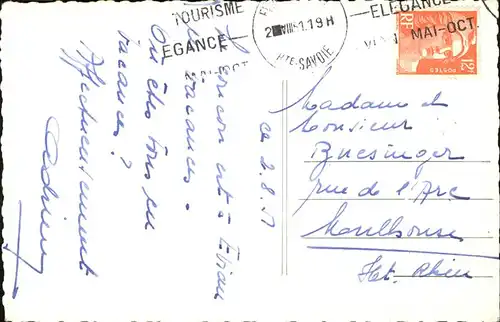 TOURISME
EGANCE—
2 VIII 51.19H
HTE-SAVOIE
—ELEGANCE
MAI-OCT.
RF
POSTES
12F
est à Evian
vacances.
Où êtes vous en
vacances ?
Affectueusement
ce 2.8.51
Madame et
Monsieur
Buesinger
rue de l'Arc
Moulhouse
Ht. Rhin